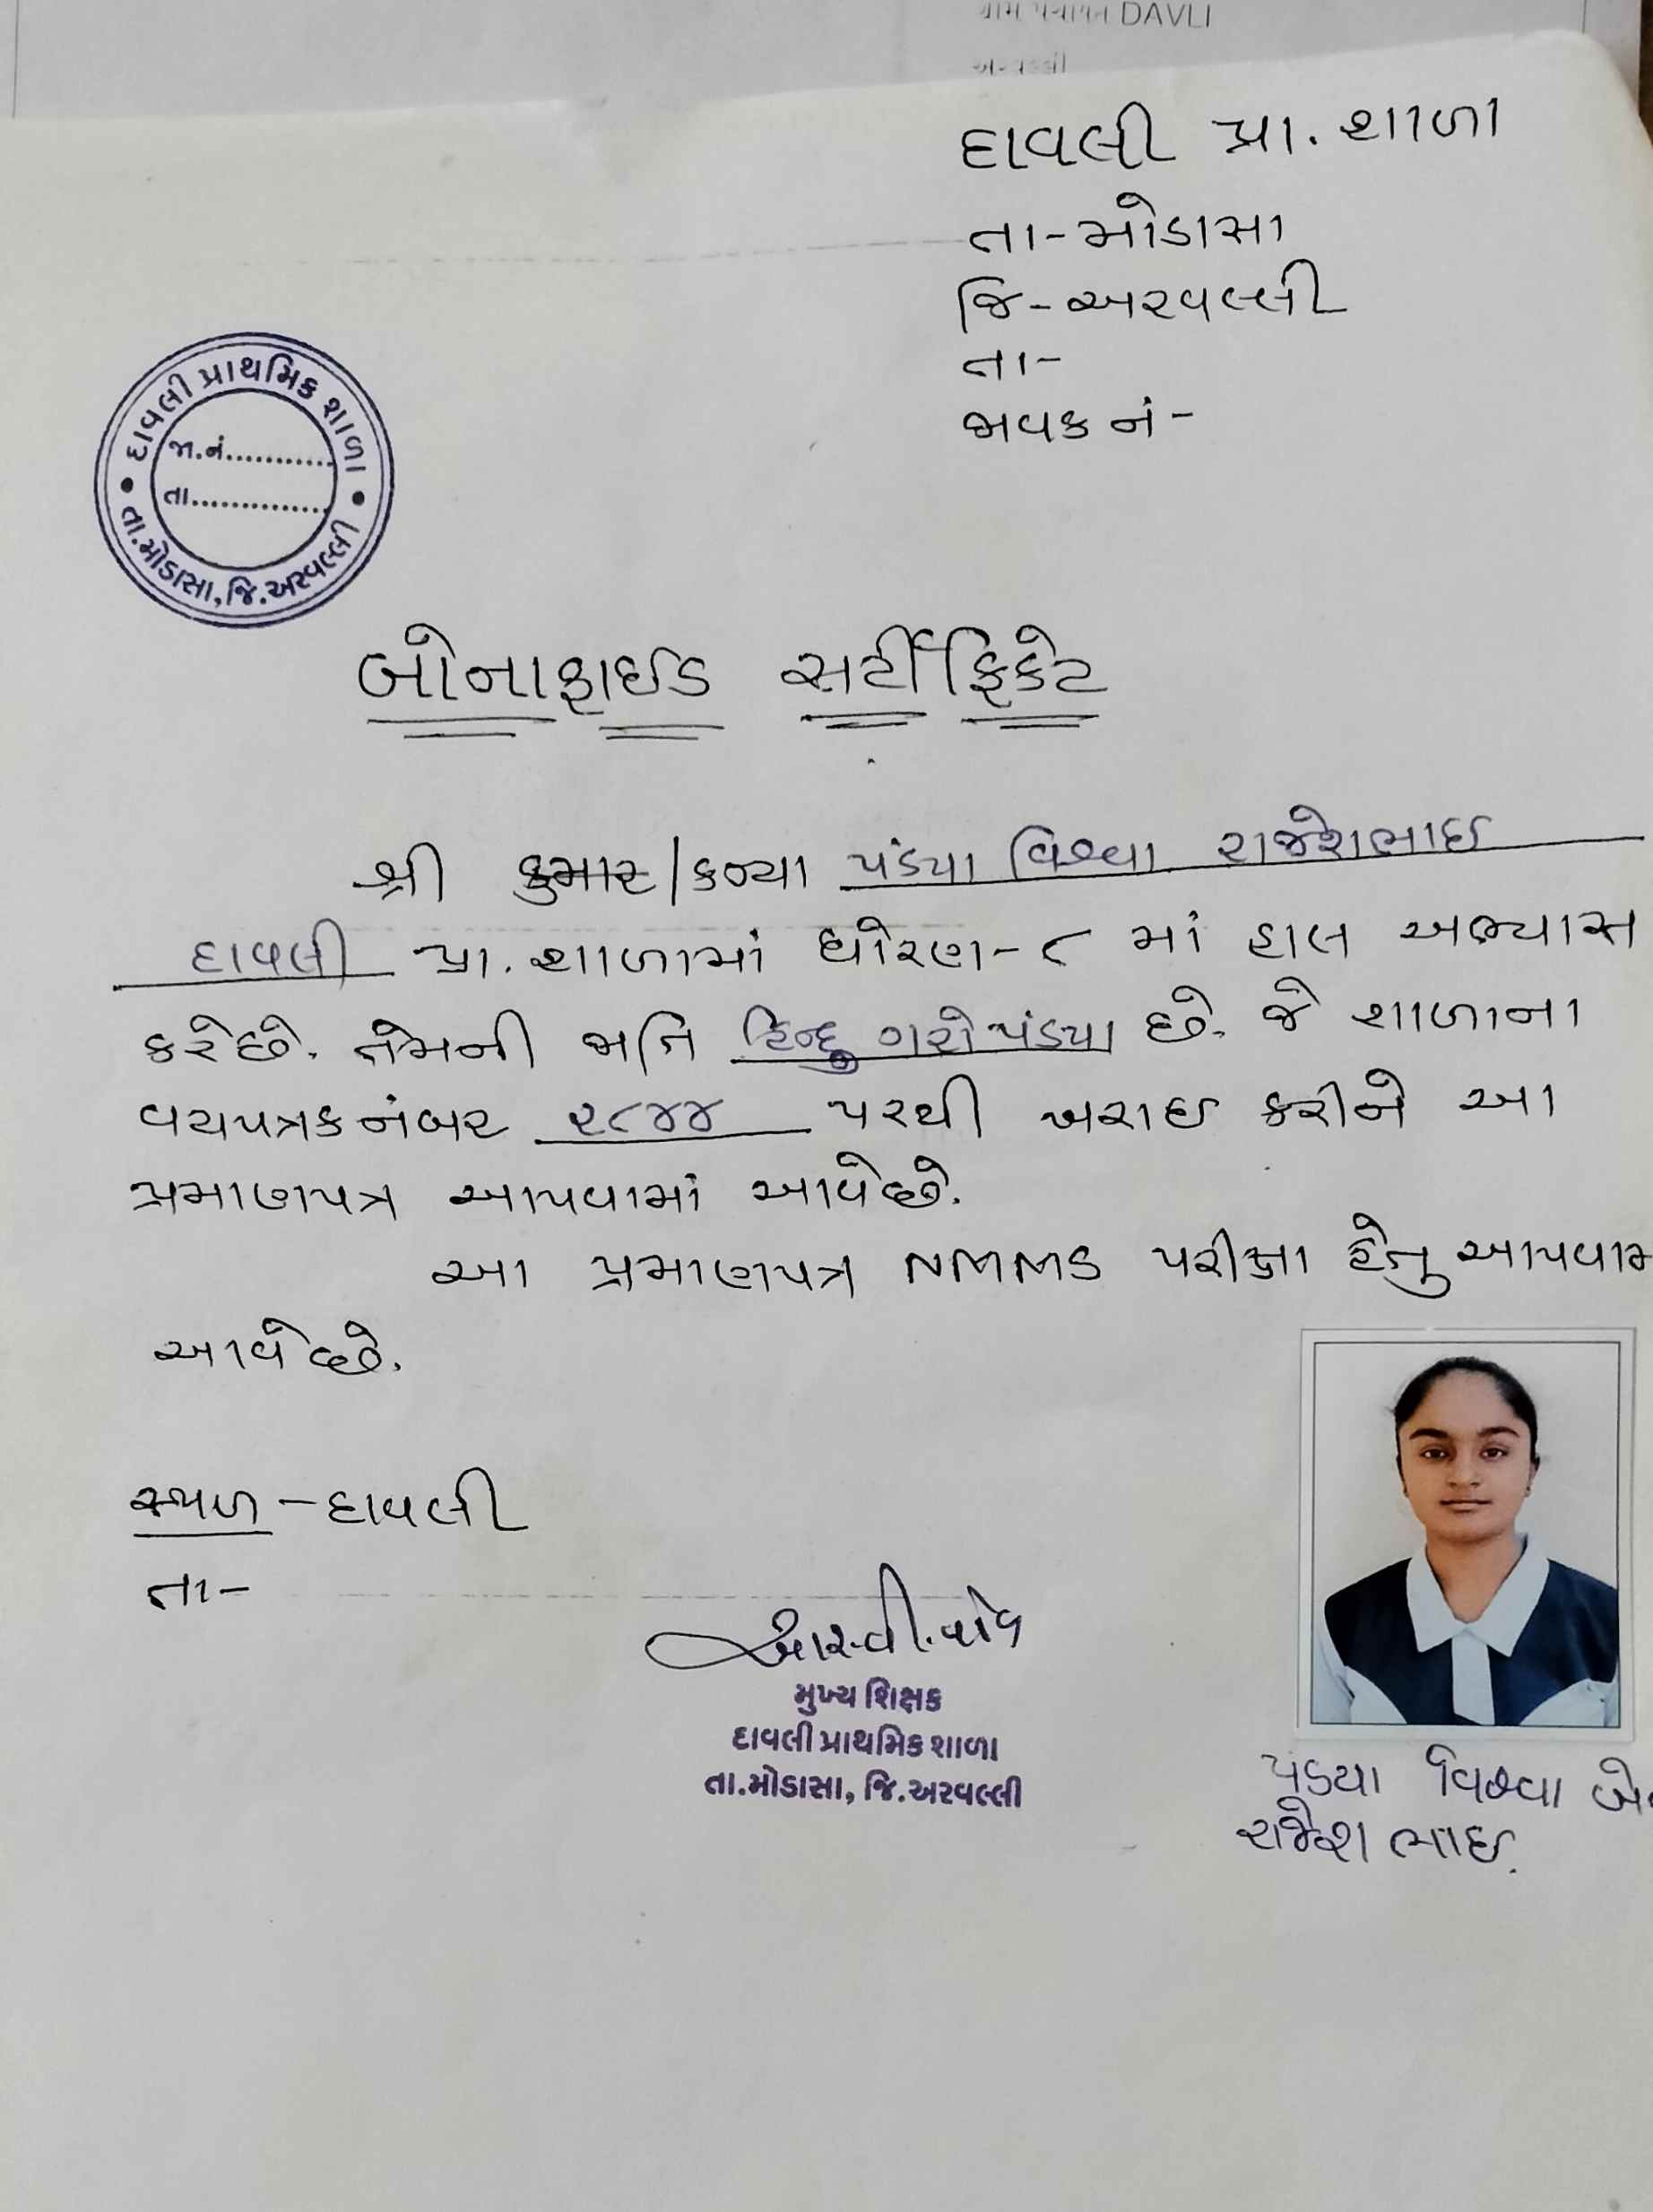 DAVLI
દાવલી પ્રા. શાળા
તા-મોડાસા
જિ-અરવલ્લી
તા-
જાવક નં-
દાવલી પ્રાથમિક શાળા
જા.નં............
તા...............
તા.મોડાસા, જિ.અરવલ્લી
બોનાફાઈડ સર્ટીફિકેટ
શ્રી કુમાર/કન્યા પંડયા વિશ્વા રાજેશભાઇ
દાવલી પ્રા. શાળામાં ધોરણ-૮ માં હાલ અભ્યાસ
કરેછે. તેમની જાતિ હિન્દુ ગરો પંડ્યા છે. જે શાળાના
વયપત્રક નંબર ૨૮૪૪ પરથી ખરાઇ કરીને આ
પ્રમાણપત્ર આપવામાં આવેછે.
આ પ્રમાણપત્ર NMMS પરીક્ષા હેતુ આપવામ
આવેછે.
સ્થળ - દાવલી
તા-
મુખ્ય શિક્ષક
દાવલી પ્રાથમિક શાળા
તા.મોડાસા, જિ.અરવલ્લી
પંડયા વિશ્વા બે
રાજેશભાઇ.